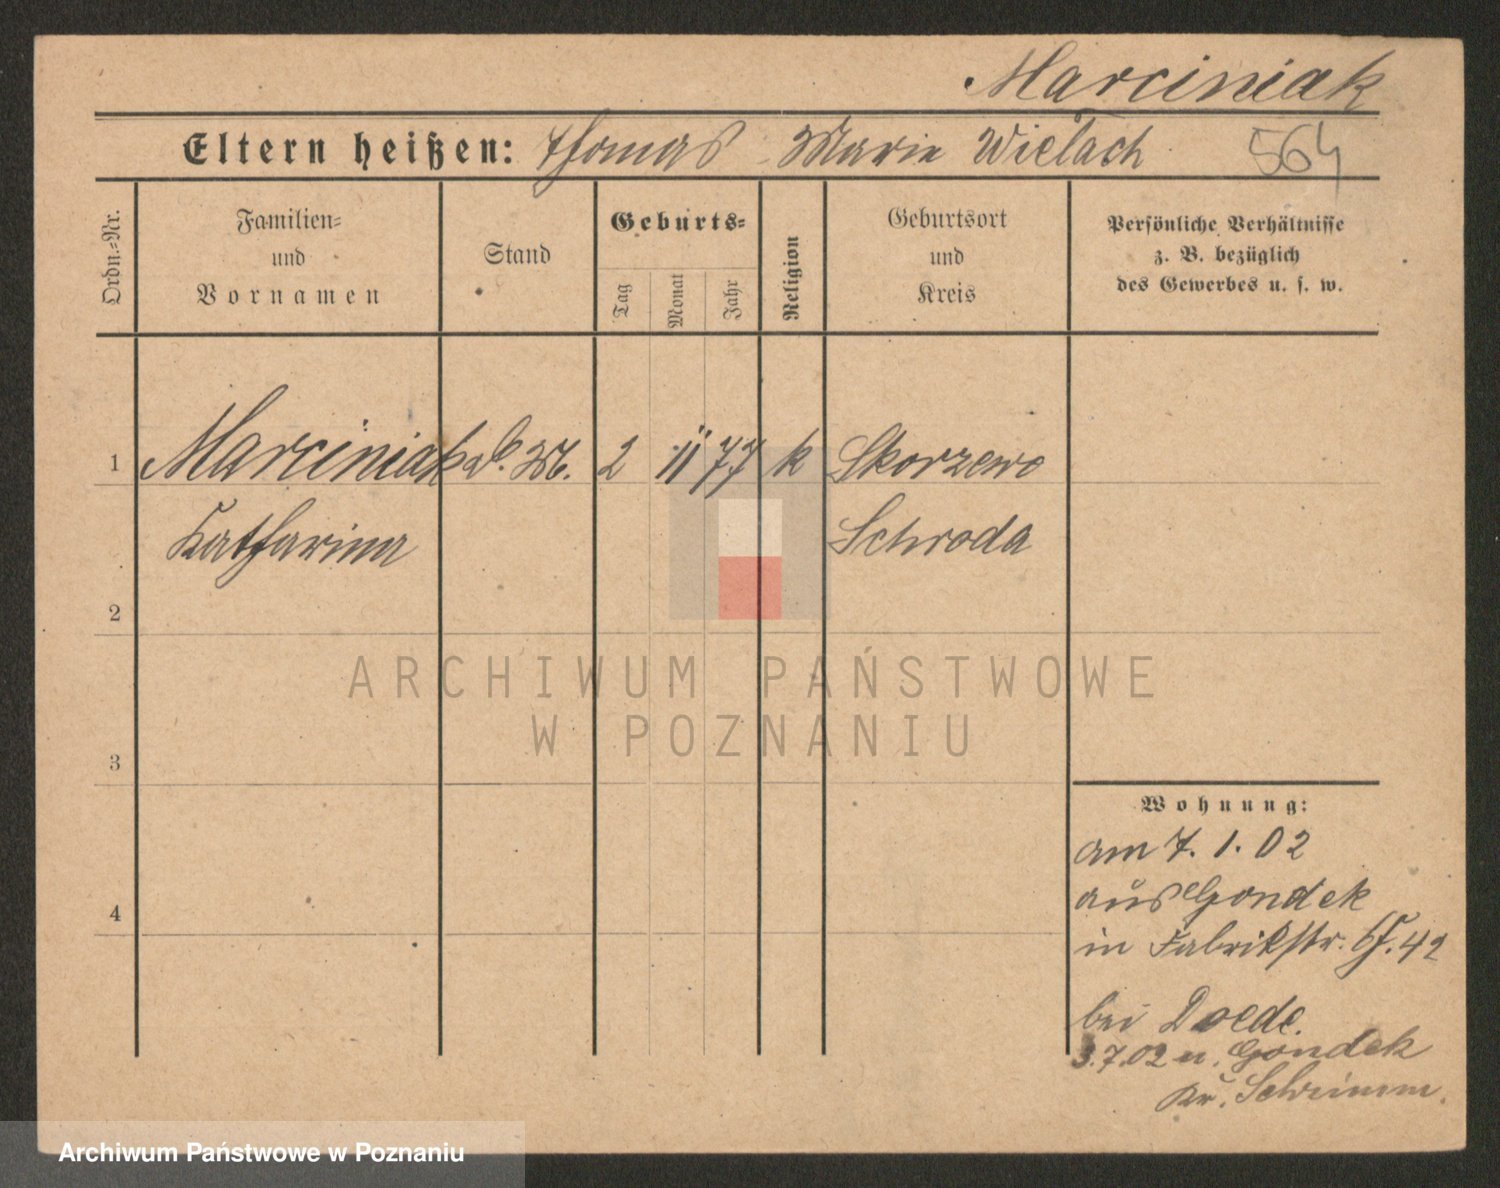 Marciniak
Eltern heißen: Thomas Marie Wielach 564
Ordn.=Nr.
Familien=
und
Vornamen
Stand
Geburts=
Tag
Monat
Jahr
Religion
Geburtsort
und
Kreis
Persönliche Verhältnisse
z. B. bezüglich
des Gewerbes u. s. w.
1 Marciniak D. M. 2 11 77 k Skorzewo
Katharina Schroda
2
ARCHIWUM PAŃSTWOWE
W POZNANIU
3
Wohnung:
am 7. 1. 02
4 aus Gondek
in Fabrikstr. 42
bei Doede.
3.7.02 n. Gondek
Kr. Schrimm.
Archiwum Państwowe w Poznaniu